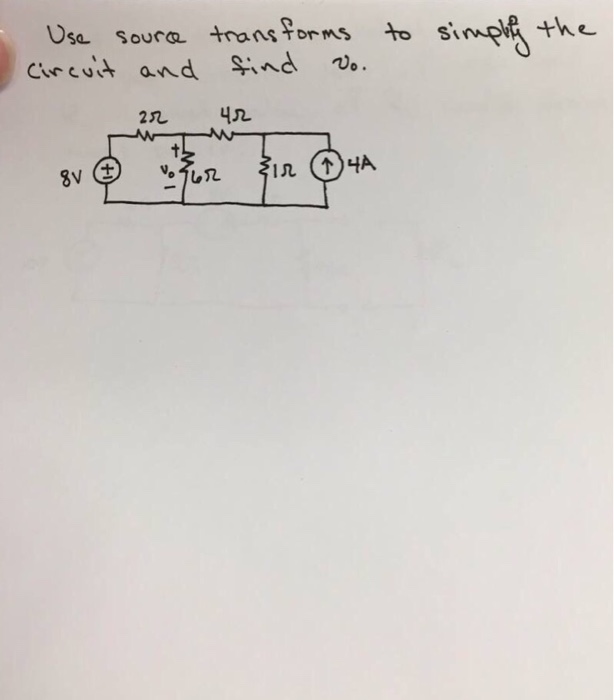 Use source transforms to simplify the
circuit and find v₀.
2Ω 4Ω
8V ± + v₀ − 6Ω 1Ω ↑ 4A